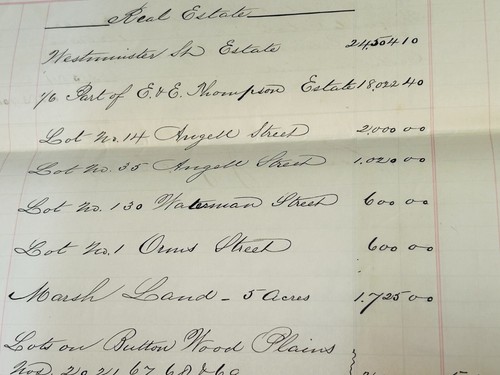 Real Estate
Westminster St. Estate 24,504 10
1/6 Part of E. & E. Thompson Estate 18,022 40
Lot No. 14 Angell Street 2,000 00
Lot No. 35 Angell Street 1,020 00
Lot No. 130 Waterman Street 600 00
Lot No. 1 Orms Street 600 00
Marsh Land - 5 Acres 1,725 00
Lots on Button Wood Plains
Nos. 20 21 67 68 & 69